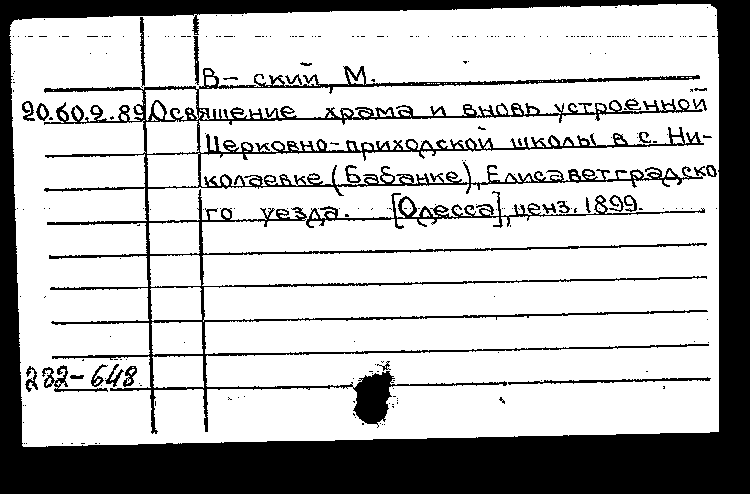 В- ский, М.
20.60.2.89 Освящение храма и вновь устроенной
Церковно-приходской школы в с. Ни-
колаевке (Бабанке), Елисаветградско
го уезда. [Одесса], ценз. 1899.
282-648